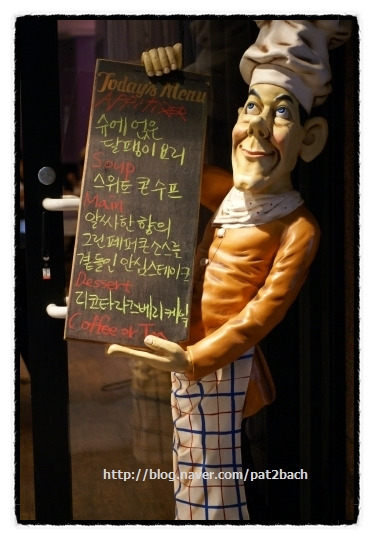 Today's Menu
APPITIZER
슈에 얹은
달팽이 요리
Soup
스위트 콘 수프
Main
알싸한 향의
그린 페퍼콘 소스를
곁들인 안심 스테이크
Dessert
리코타 라즈베리 케익
Coffee or Tea
http://blog.naver.com/pat2bach